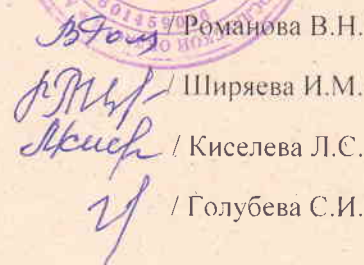 / Романова В.Н.
/ Ширяева И.М.
/ Киселева Л.С.
/ Голубева С.И.